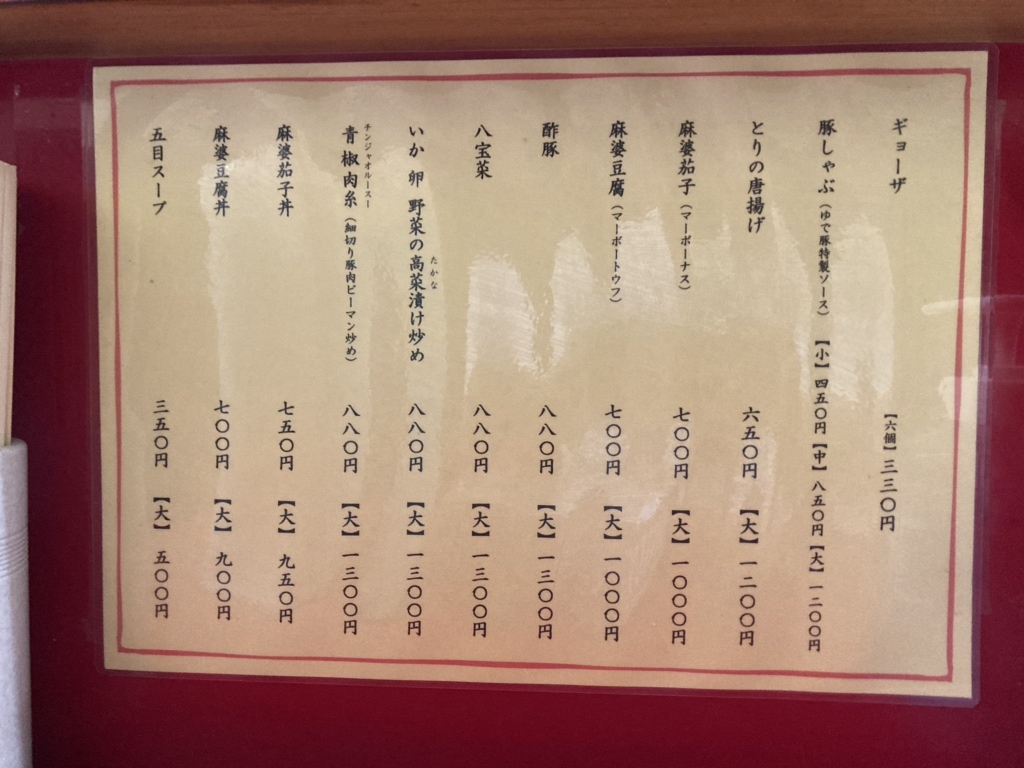 ギョーザ 【六個】三三〇円
豚しゃぶ（ゆで豚特製ソース）【小】四五〇円【中】八五〇円【大】一二〇〇円
とりの唐揚げ 六五〇円 【大】一二〇〇円
麻婆茄子（マーボーナス） 七〇〇円 【大】一〇〇〇円
麻婆豆腐（マーボートウフ） 七〇〇円 【大】一〇〇〇円
酢豚 八八〇円 【大】一三〇〇円
八宝菜 八八〇円 【大】一三〇〇円
たかな
いか 卵 野菜の高菜漬け炒め 八八〇円 【大】一三〇〇円
チンジャオルースー
青椒肉糸（細切り豚肉ピーマン炒め） 八八〇円 【大】一三〇〇円
麻婆茄子丼 七五〇円 【大】九五〇円
麻婆豆腐丼 七〇〇円 【大】九〇〇円
五目スープ 三五〇円 【大】五〇〇円